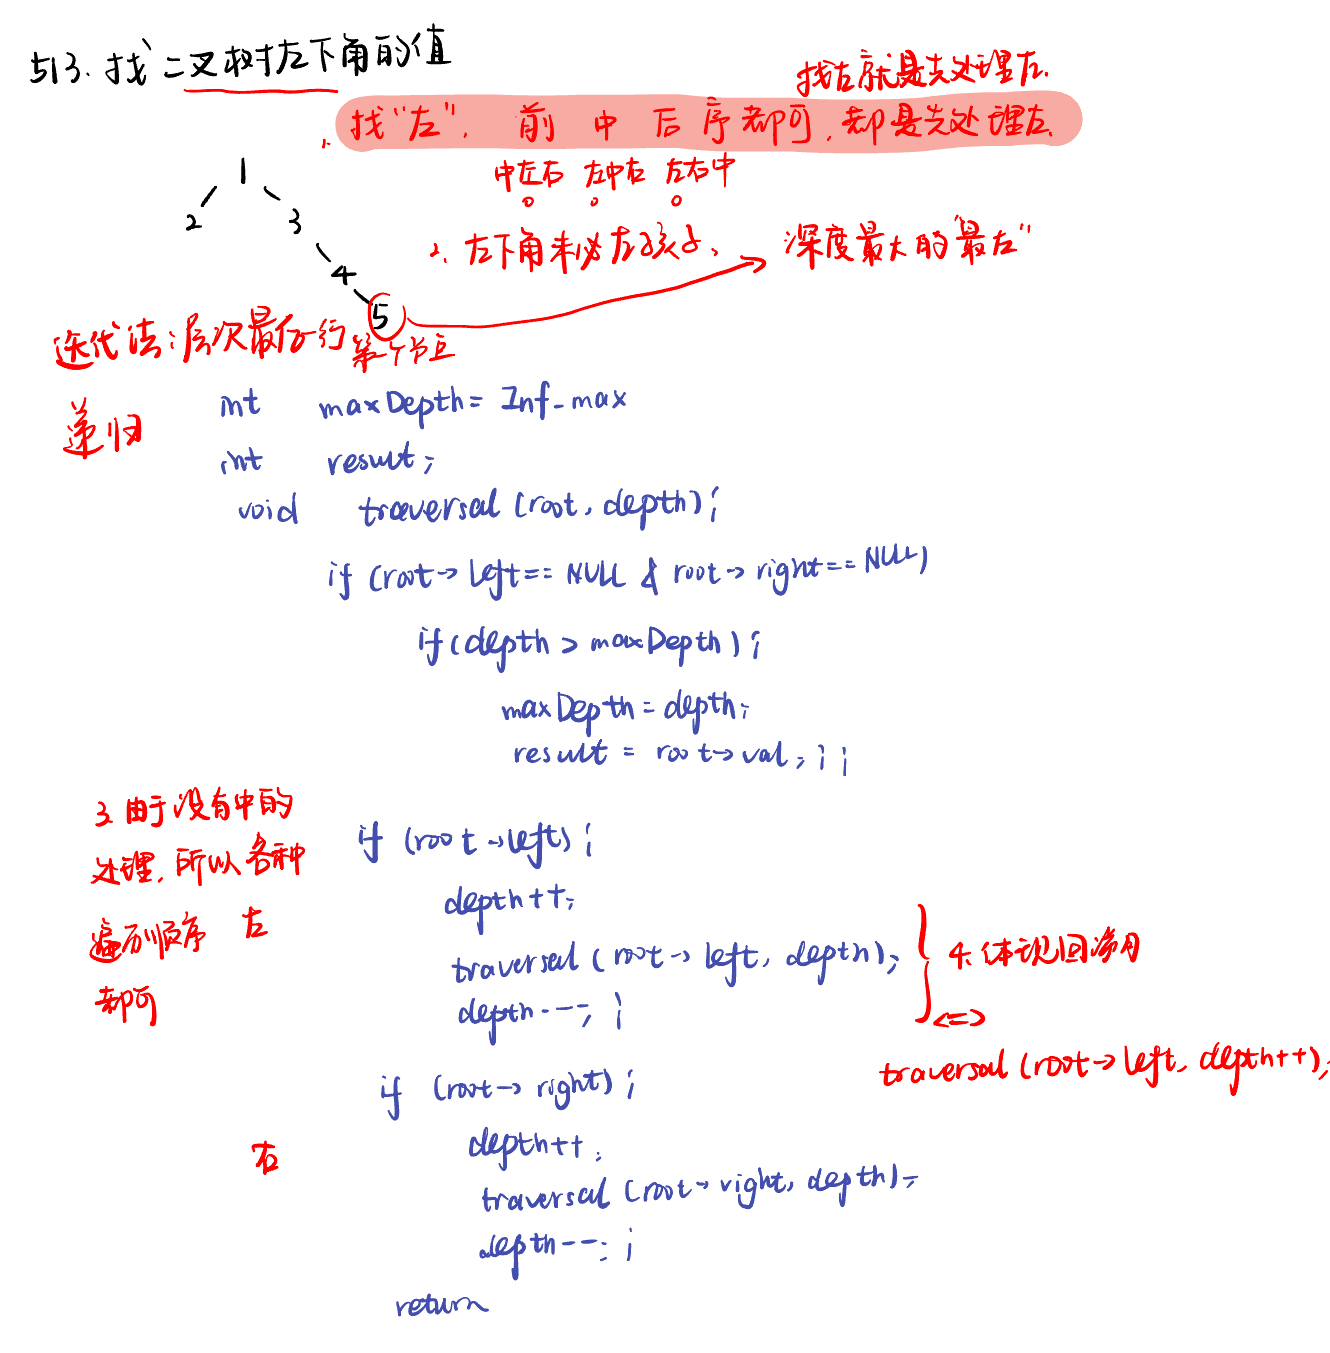 513. 找二叉树左下角的值
找左就是先处理左.
1. 找“左”, 前 中 后 序都可, 都是先处理左.
中左右 左中右 左右中
1
2 3
4
5
2. 左下角未必左孩子, 深度最大的“最左”
迭代法: 层次最后一行第一个节点
递归
int maxDepth = Inf_max
int result;
void traversal (root, depth) {
if (root->left == NULL & root->right == NULL)
if (depth > maxDepth) {
maxDepth = depth;
result = root->val; } }
3. 由于没有中的
处理, 所以各种
遍历顺序
都可
左
if (root->left) {
depth++;
traversal (root->left, depth);
depth--; }
4. 体现回溯
<=>
traversal (root->left, depth++);
右
if (root->right) {
depth++;
traversal (root->right, depth);
depth--; }
return